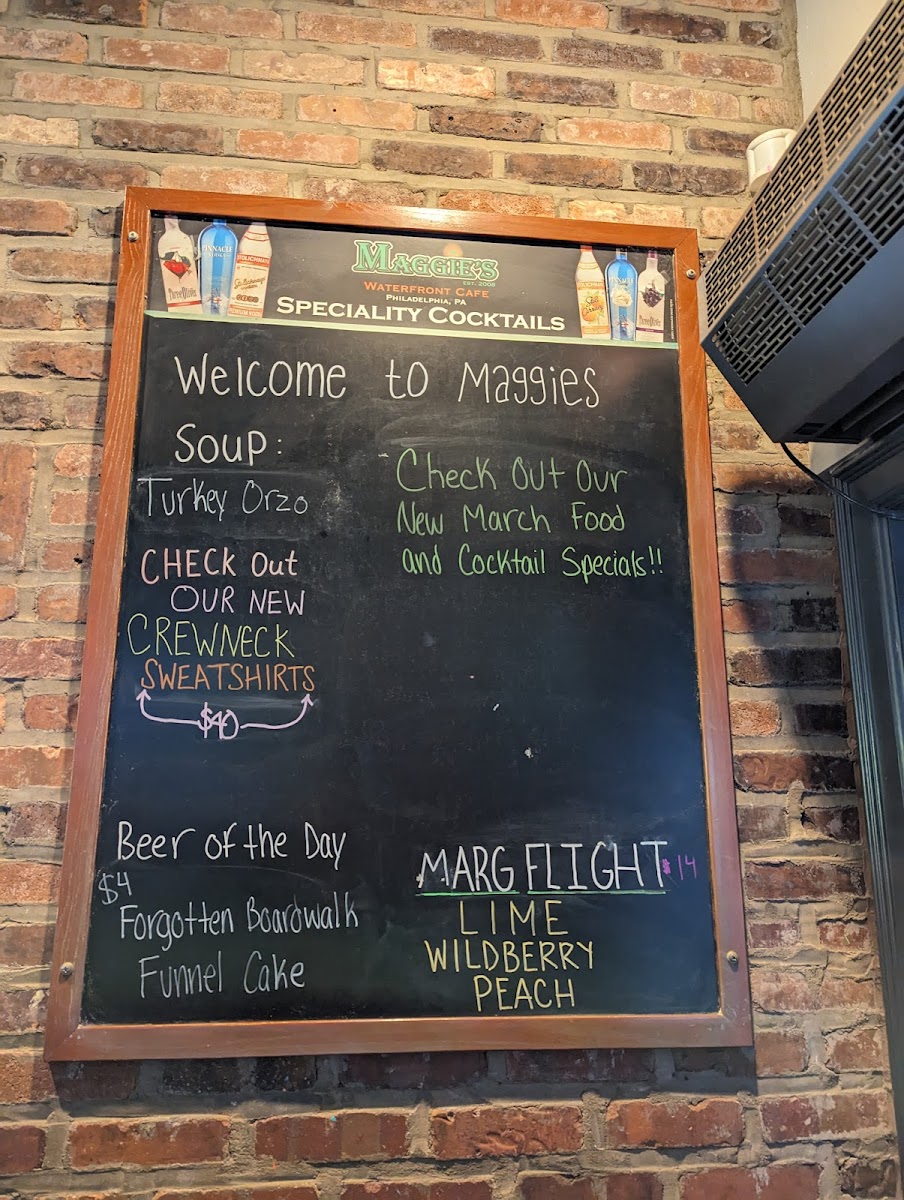 MAGGIE'S
EST. 2008
WATERFRONT CAFE
PHILADELPHIA, PA
SPECIALITY COCKTAILS
PINNACLE
Three Olives
Three Olives
Welcome to Maggies
Soup:
Turkey Orzo
Check Out Our
New March Food
and Cocktail Specials!!
CHECK Out
OUR NEW
CREWNECK
SWEATSHIRTS
$40
Beer of the Day
$4
Forgotten Boardwalk
Funnel Cake
MARG FLIGHT $14
LIME
WILDBERRY
PEACH